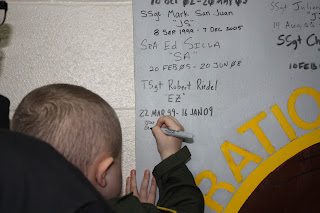 SSgt Mark San Juan
"JS"
8 SEP 1999 - 7 DEC 2005
SRA Ed SILVA
"SA"
20 FEB 05 - 20 JUN 08
TSgt Robert Riedel
"EZ"
22 MAR 99 - 16 JAN 09
SSgt Julian
SSgt Ch
10 FEB
RATIO